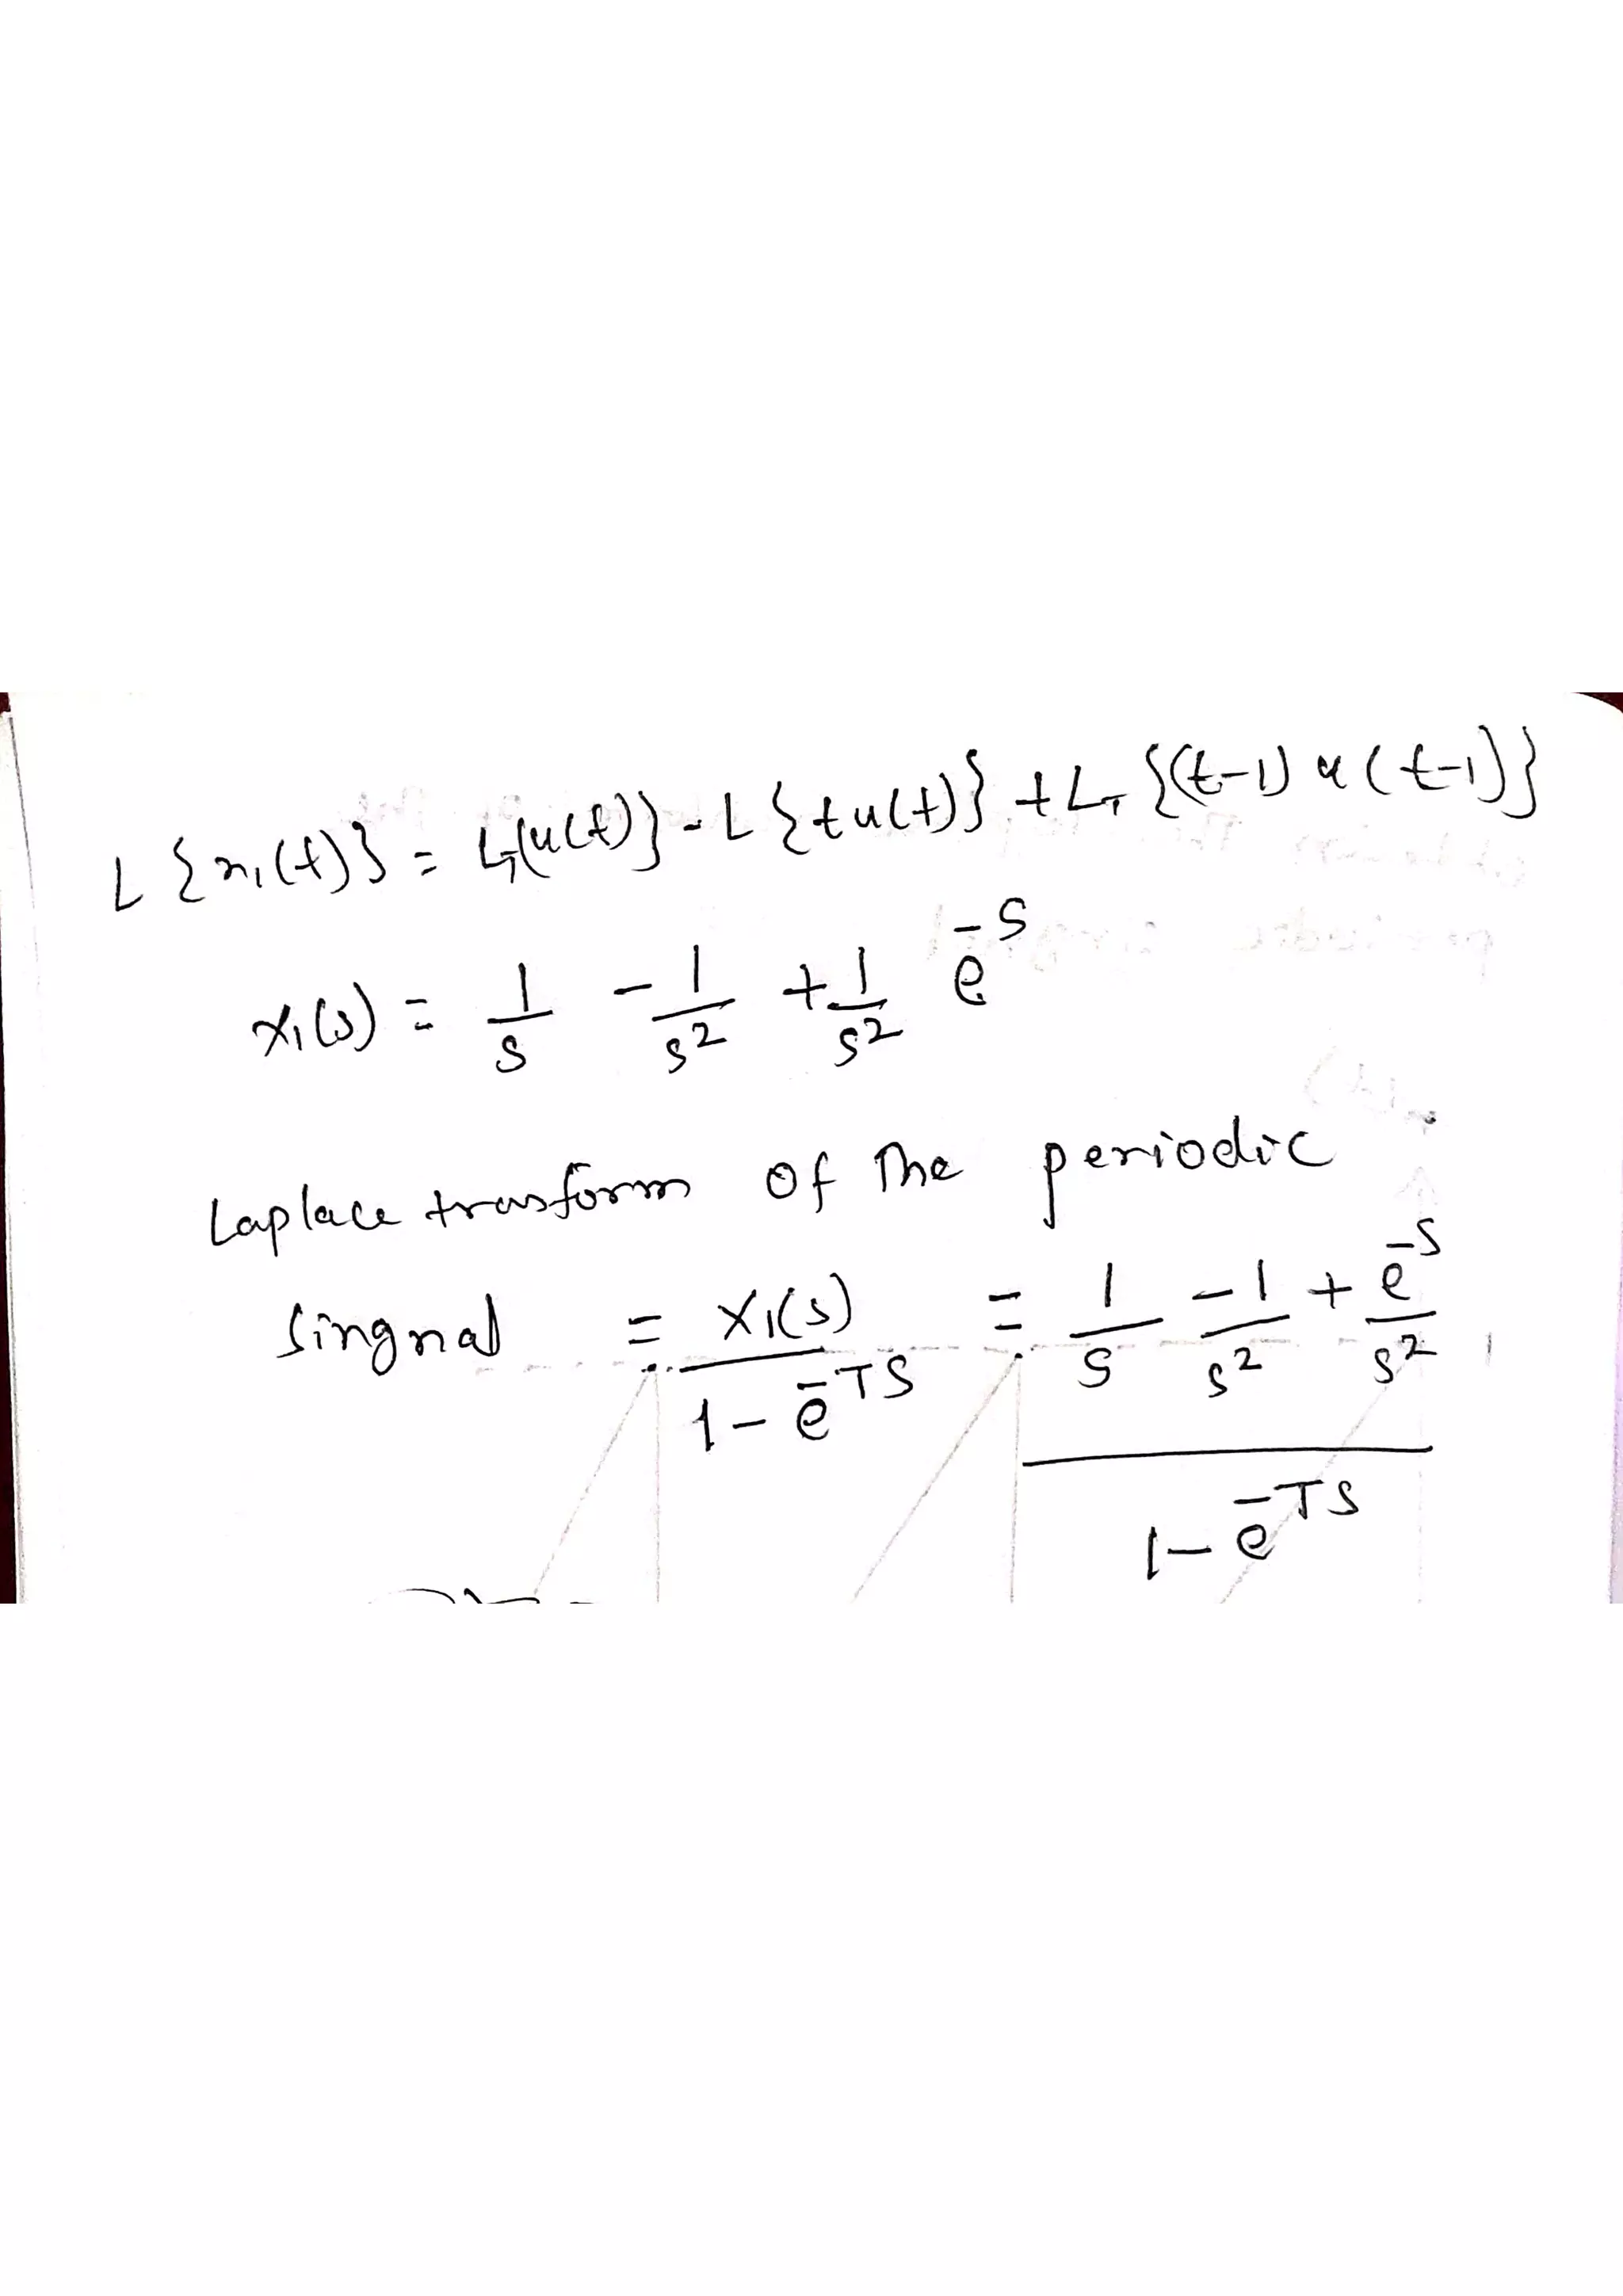 L{x₁(t)} = LT{u(t)} - L{tu(t)} + LT{(t-1)u(t-1)}
X₁(s) = 1/s - 1/s² + 1/s² e^-s
Laplace trasform of The periodic
Singnal = X₁(s)/(1 - e^-TS) = (1/s - 1/s² + e^-s/s²)/(1 - e^-TS)